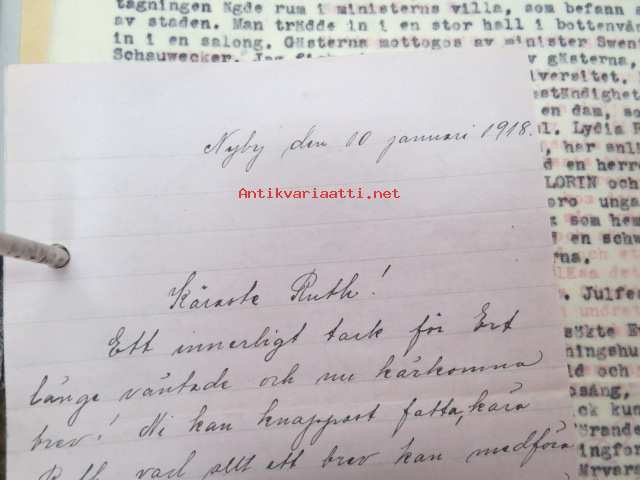 tagningen ägde rum i ministerns villa, som befann
av staden. Man trädde in i en stor hall i bottenvån
in i en salong. Gästerna mottogos av minister Swen
Schauwecker. Jag gästerna,
versitet.
ständighet
en dam, so
l. Lydia
, har anlä
d en herre
LORIN och
ero unga
som hem
en schw
rna.
. Julfes
sökte E
ningshu
ld och
osång,
ck kun
örande
ingfor
Nyby den 10 januari 1918.
Antikvariaatti.net
Käraste Ruth!
Ett innerligt tack för Ert
länge väntade och nu kärkomna
brev! Ni kan knappast fatta, kära
Ruth vad allt ett brev kan medföra